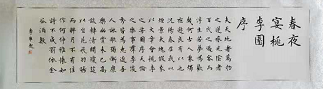 春夜
宴桃
李園
序
夫天地者萬物
之逆旅光陰者
百代之過客而
浮生若夢為歡
幾何古人秉燭
夜遊良有以也
況陽春召我以
煙景大塊假我
以文章會桃李
之芳園序天倫
之樂事群季俊
秀皆為惠連吾
人詠歌獨慚康
樂幽賞未已高
談轉清開瓊筵
以坐花飛羽觴
而醉月不有佳
作何伸雅懷如
詩不成罰依金
谷酒數